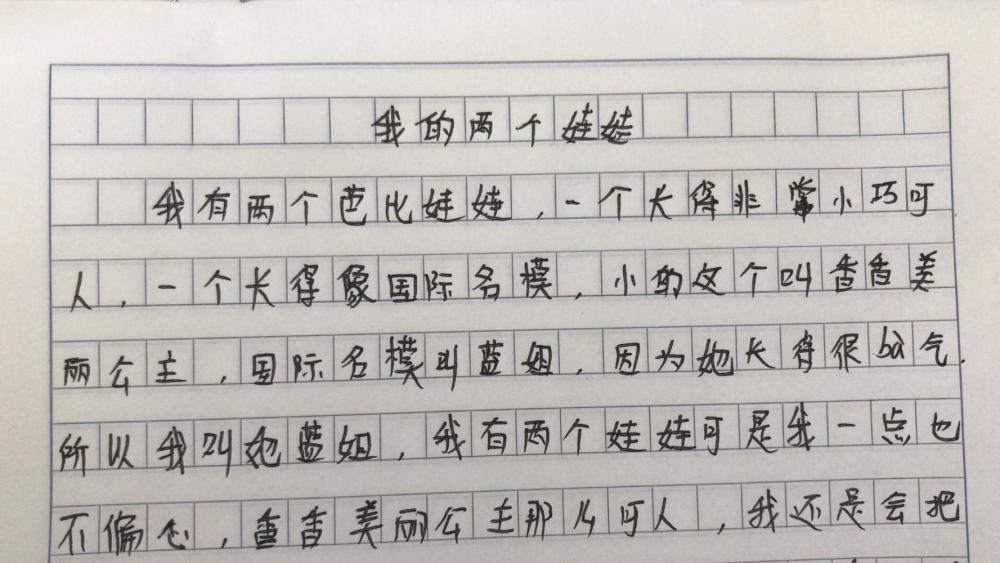 我的两个娃娃
我有两个芭比娃娃,一个长得非常小巧可
人,一个长得像国际名模,小的这个叫香香美
丽公主,国际名模叫蓝姐,因为她长得很bà气.
所以我叫她蓝姐,我有两个娃娃可是我一点也
不偏心,香香美丽公主那么可人,我还是会把